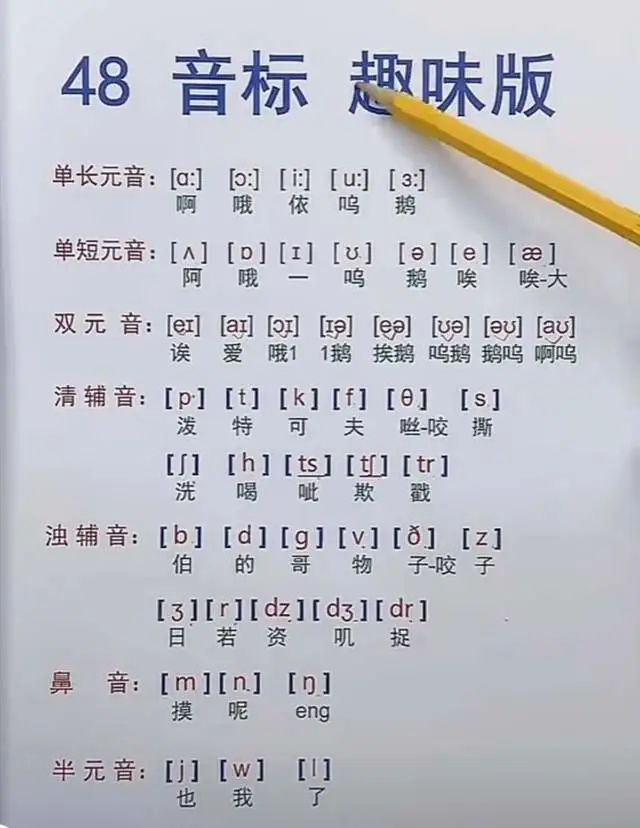 48 音标 趣味版
单长元音：[ɑ:] [ɔ:] [i:] [u:] [ɜ:]
啊 哦 依 呜 鹅
单短元音：[ʌ] [ɒ] [ɪ] [ʊ] [ə] [e] [æ]
阿 哦 一 呜 鹅 唉 唉-大
双元音：[eɪ] [aɪ] [ɔɪ] [ɪə] [eə] [ʊə] [əʊ] [aʊ]
诶 爱 哦1 1鹅 挨鹅 呜鹅 鹅呜 啊呜
清辅音：[p] [t] [k] [f] [θ] [s]
泼 特 可 夫 咝-咬 撕
[ʃ] [h] [ts] [tʃ] [tr]
洗 喝 呲 欺 戳
浊辅音：[b] [d] [g] [v] [ð] [z]
伯 的 哥 物 子-咬 子
[ʒ] [r] [dz] [dʒ] [dr]
日 若 资 叽 捉
鼻音：[m] [n] [ŋ]
摸 呢 eng
半元音：[j] [w] [l]
也 我 了